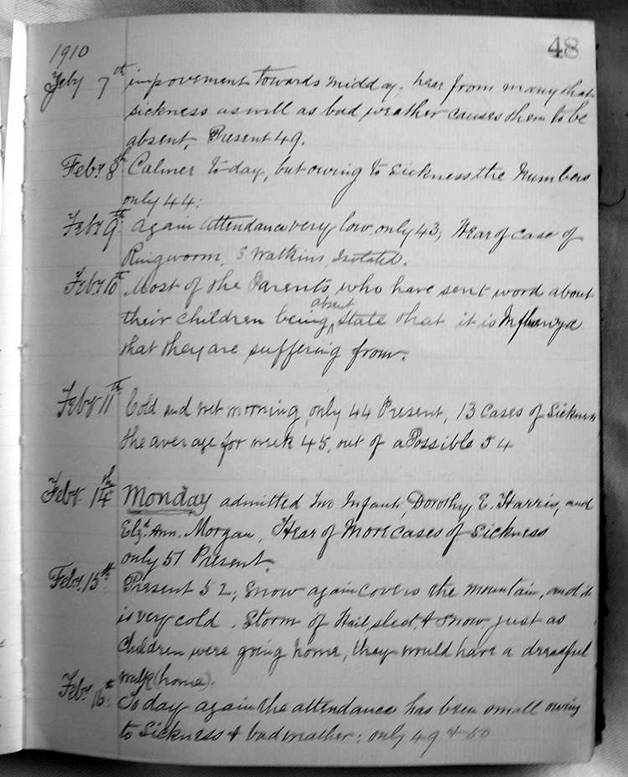 48
1910
Feby 7th impovement towards midday. hear from many that
sickness as well as bad weather causes them to be
absent, Present 49.
Feby 8th Calmer to day, but owing to Sickness the Numbers
only 44.
Feby 9th Again Attendance very low, only 43, Hear of case of
Ringworm, S Watkins, Isolated.
Feby 10th Most of the Parents who have sent word about
absent
their children being state that it is Influenza
that they are suffering from.
Feby 11th Cold and wet morning, only 44 Present, 13 Cases of Sickness
the average for week 45, out of a Possible 54
Feby 14th Monday admitted Two Infants Dorothy E. Harris, and
Elizth Ann. Morgan, Hear of More cases of Sickness
only 51 Present.
Feby 15th Present 52, Snow again covers the mountain, and it
is very cold. Storm of Hail, sleet, & snow, just as
Children were going home, they would have a dreadful
walk (home).
Feby 16th To day again the attendance has been small owing
to Sickness & bad weather: only 49 & 50